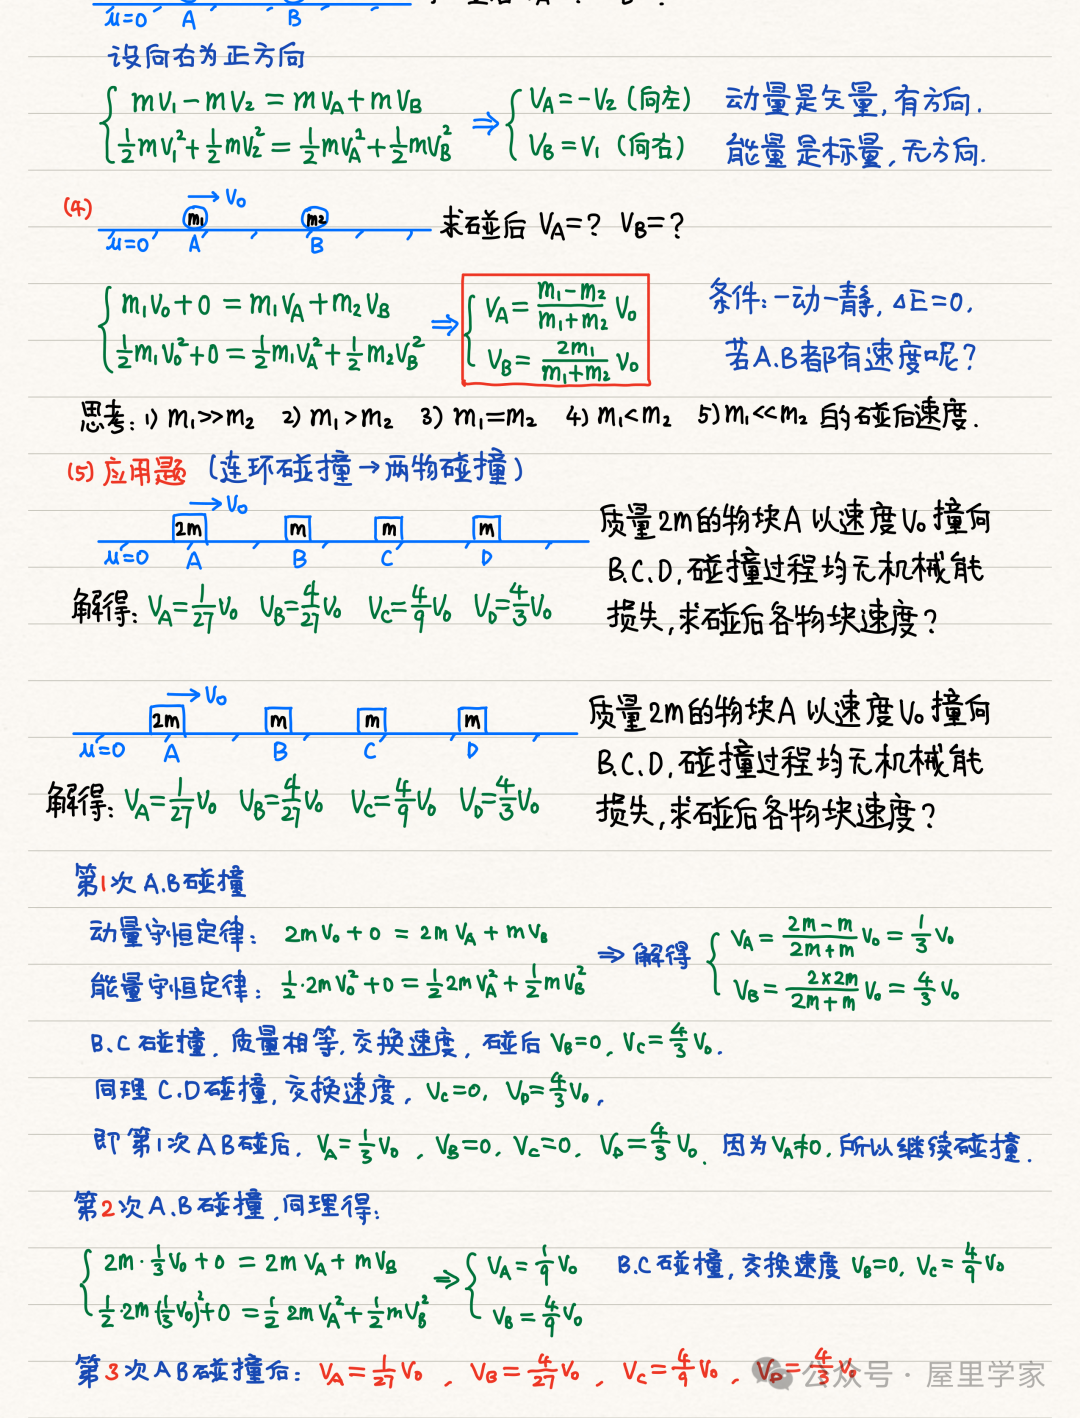 μ=0 A B
设向右为正方向
mV₁-mV₂=mV_A+mV_B
½mV₁²+½mV₂²=½mV_A²+½mV_B²
⇒ V_A=-V₂(向左)
V_B=V₁(向右)
动量是矢量,有方向.
能量是标量,无方向.
(4) →V₀
m₁ m₂
μ=0 A B
求碰后 V_A=? V_B=?
m₁V₀+0=m₁V_A+m₂V_B
½m₁V₀²+0=½m₁V_A²+½m₂V_B²
⇒ V_A=(m₁-m₂)/(m₁+m₂) V₀
V_B=2m₁/(m₁+m₂) V₀
条件:一动一静,ΔE=0,
若A.B都有速度呢?
思考:1) m₁>>m₂ 2) m₁>m₂ 3) m₁=m₂ 4) m₁<m₂ 5) m₁<<m₂ 的碰后速度.
(5)应用题 (连环碰撞→两物碰撞)
→V₀
2m m m m
μ=0 A B C D
质量2m的物块A以速度V₀撞向
B.C.D,碰撞过程均无机械能
损失,求碰后各物块速度?
解得: V_A=1/27 V₀ V_B=4/27 V₀ V_C=4/9 V₀ V_D=4/3 V₀
→V₀
2m m m m
μ=0 A B C D
质量2m的物块A以速度V₀撞向
B.C.D,碰撞过程均无机械能
损失,求碰后各物块速度?
解得: V_A=1/27 V₀ V_B=4/27 V₀ V_C=4/9 V₀ V_D=4/3 V₀
第1次A.B碰撞
动量守恒定律: 2mV₀+0=2mV_A+mV_B
能量守恒定律: ½·2mV₀²+0=½2mV_A²+½mV_B²
⇒解得 V_A=(2m-m)/(2m+m) V₀=1/3 V₀
V_B=(2×2m)/(2m+m) V₀=4/3 V₀
B.C碰撞,质量相等,交换速度,碰后V_B=0,V_C=4/3 V₀.
同理C.D碰撞,交换速度,V_C=0,V_D=4/3 V₀,
即第1次AB碰后,V_A=1/3 V₀,V_B=0,V_C=0,V_D=4/3 V₀.因为V_A≠0,所以继续碰撞.
第2次A.B碰撞,同理得:
2m·1/3 V₀+0=2mV_A+mV_B
½·2m(1/3 V₀)²+0=½2mV_A²+½mV_B²
⇒ V_A=1/9 V₀
V_B=4/9 V₀
B.C碰撞,交换速度V_B=0,V_C=4/9 V₀
第3次AB碰撞后: V_A=1/27 V₀,V_B=4/27 V₀,V_C=4/9 V₀,V_D=4/3 V₀
公众号·屋里学家